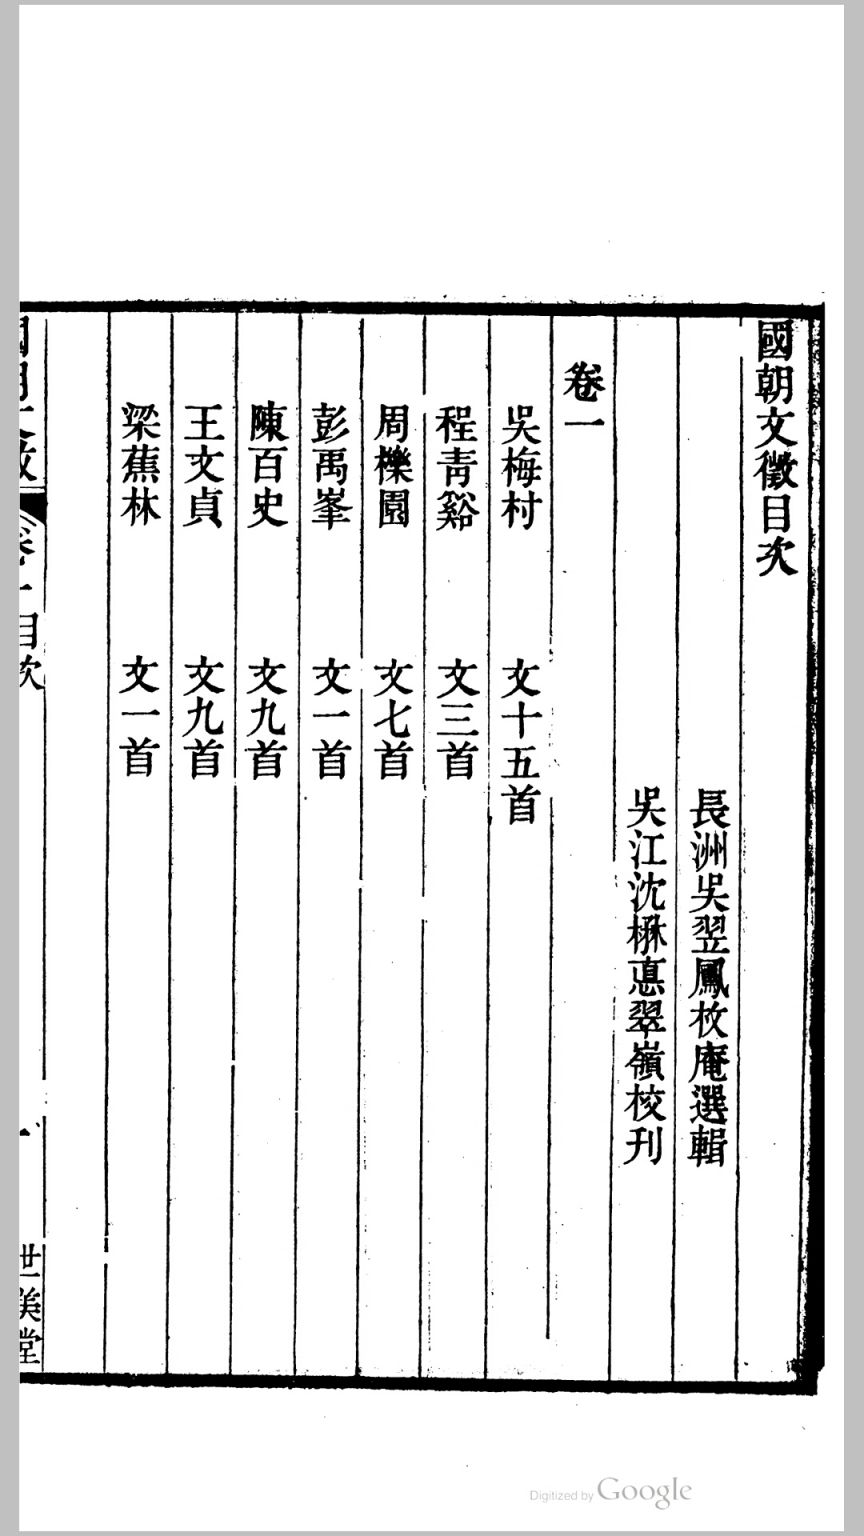 國朝文徵目次
長洲吳翌鳳枚庵選輯
吳江沈楙悳翠嶺校刊
卷一
吳梅村 文十五首
程青谿 文三首
周櫟園 文七首
彭禹峯 文一首
陳百史 文九首
王文貞 文九首
梁蕉林 文一首
國朝文徵 卷一目次 一 世美堂
Digitized by Google